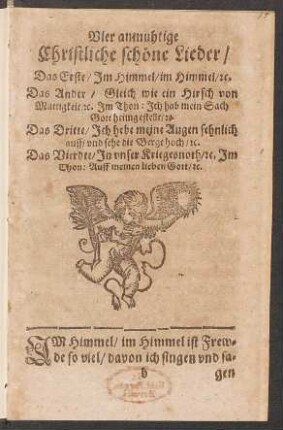 Vier anmuhtige
Christliche schöne Lieder/
Das Erste/ Im Himmel/ im Himmel/ ꝛc.
Das Ander/ Gleich wie ein Hirsch von
Mattigkeit ꝛc. Im Thon: Ich hab mein Sach
Gott heimgestellt/ ꝛc.
Das Dritte/ Ich hebe meine Augen sehnlich
auff/ vnd sehe die Berge hoch/ ꝛc.
Das Vierdte/ In vnser Kriegesnoth/ ꝛc. Im
Thon: Auff meinen lieben Gott/ ꝛc.
IM Himmel/ im Himmel ist Frew-
de so viel/ davon ich singen vnd sa-
b gen